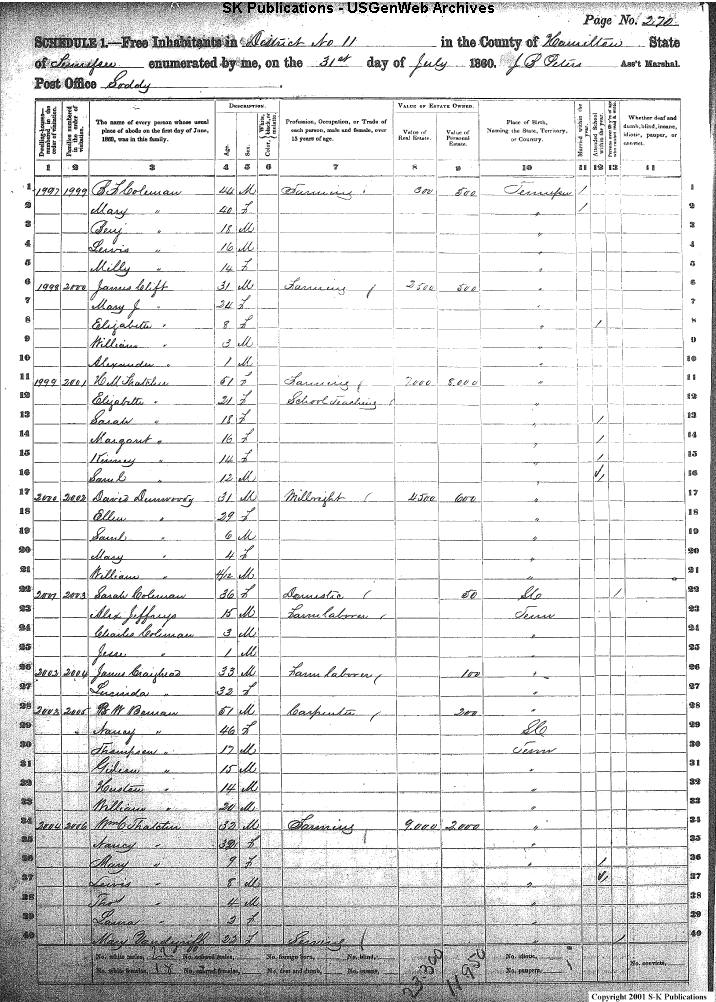 SK Publications - USGenWeb Archives
Page No. 270
SCHEDULE 1.—Free Inhabitants in District No 11 in the County of Hamilton State
of Tennessee enumerated by me, on the 31st day of July 1860. J Peters Ass't Marshal.
Post Office Soddy
Dwelling-houses—numbered in the order of visitation.
Families numbered in the order of visitation.
The name of every person whose usual place of abode on the first day of June, 1860, was in this family.
DESCRIPTION.
Age.
Sex.
Color, White, black, or mulatto.
Profession, Occupation, or Trade of each person, male and female, over 15 years of age.
VALUE OF ESTATE OWNED.
Value of Real Estate.
Value of Personal Estate.
Place of Birth, Naming the State, Territory, or Country.
Married within the year.
Attended School within the year.
Whether deaf and dumb, blind, insane, idiotic, pauper, or convict.
1 2 3 4 5 6 7 8 9 10 11 12 13 14
1 1997 1999 B F Coleman 44 M Farming 300 500 Tennessee / 1
2 Mary " 40 F " / 2
3 Benj " 18 M " 3
4 Lewis " 16 M " 4
5 Milly " 14 F " 5
6 1998 2000 James Clift 31 M Farming 2500 500 " 6
7 Mary J " 24 F " 7
8 Elizabeth " 8 F " / 8
9 William " 3 M " 9
10 Alexander " 1 M " 10
11 1999 2001 H M Thatcher 51 F Farming 7.000 8.000 " 11
12 Elizabeth " 21 F School Teaching " 12
13 Sarah " 18 F " / 13
14 Margaret " 16 F " / 14
15 " 14 F " / 15
16 Saml " 12 M " / 16
17 2000 2002 David Dunwoody 31 M Millright 4500 600 " 17
18 Ellen " 29 F " 18
19 Saml " 6 M " 19
20 Mary " 4 F " 20
21 William " 4/12 M " 21
22 2001 2003 Sarah Coleman 36 F Domestic 50 SC / 22
23 Alex Jeffreys 15 M Farm laborer Tenn 23
24 Charles Coleman 3 M " 24
25 Jesse " 1 M " 25
26 2002 2004 James Craighead 33 M Farm laborer 100 " 26
27 Lucinda " 32 F " 27
28 2003 2005 B W Beman 51 M Carpenter 200 " 28
29 " Nancy " 46 F SC 29
30 Thompson " 17 M Tenn 30
31 " 15 M " 31
32 Huston " 14 M " 32
33 William " 20 M " 33
34 2004 2006 Wm C Thatcher 32 M Farming 9.000 2.000 " 34
35 Nancy " 32 F " 35
36 Mary " 9 F " / 36
37 Lewis " 8 M " / 37
38 Thos " 4 M " 38
39 Laura " 2 F " 39
40 Mary Vandergriff 23 F / 40
No. white males, No. colored males, No. foreign born, No. blind, No. idiotic, No. convicts,
No. white females, 18 No. colored females, No. deaf and dumb, No. insane, 23300 11950 No. paupers,
Copyright 2001 S-K Publications